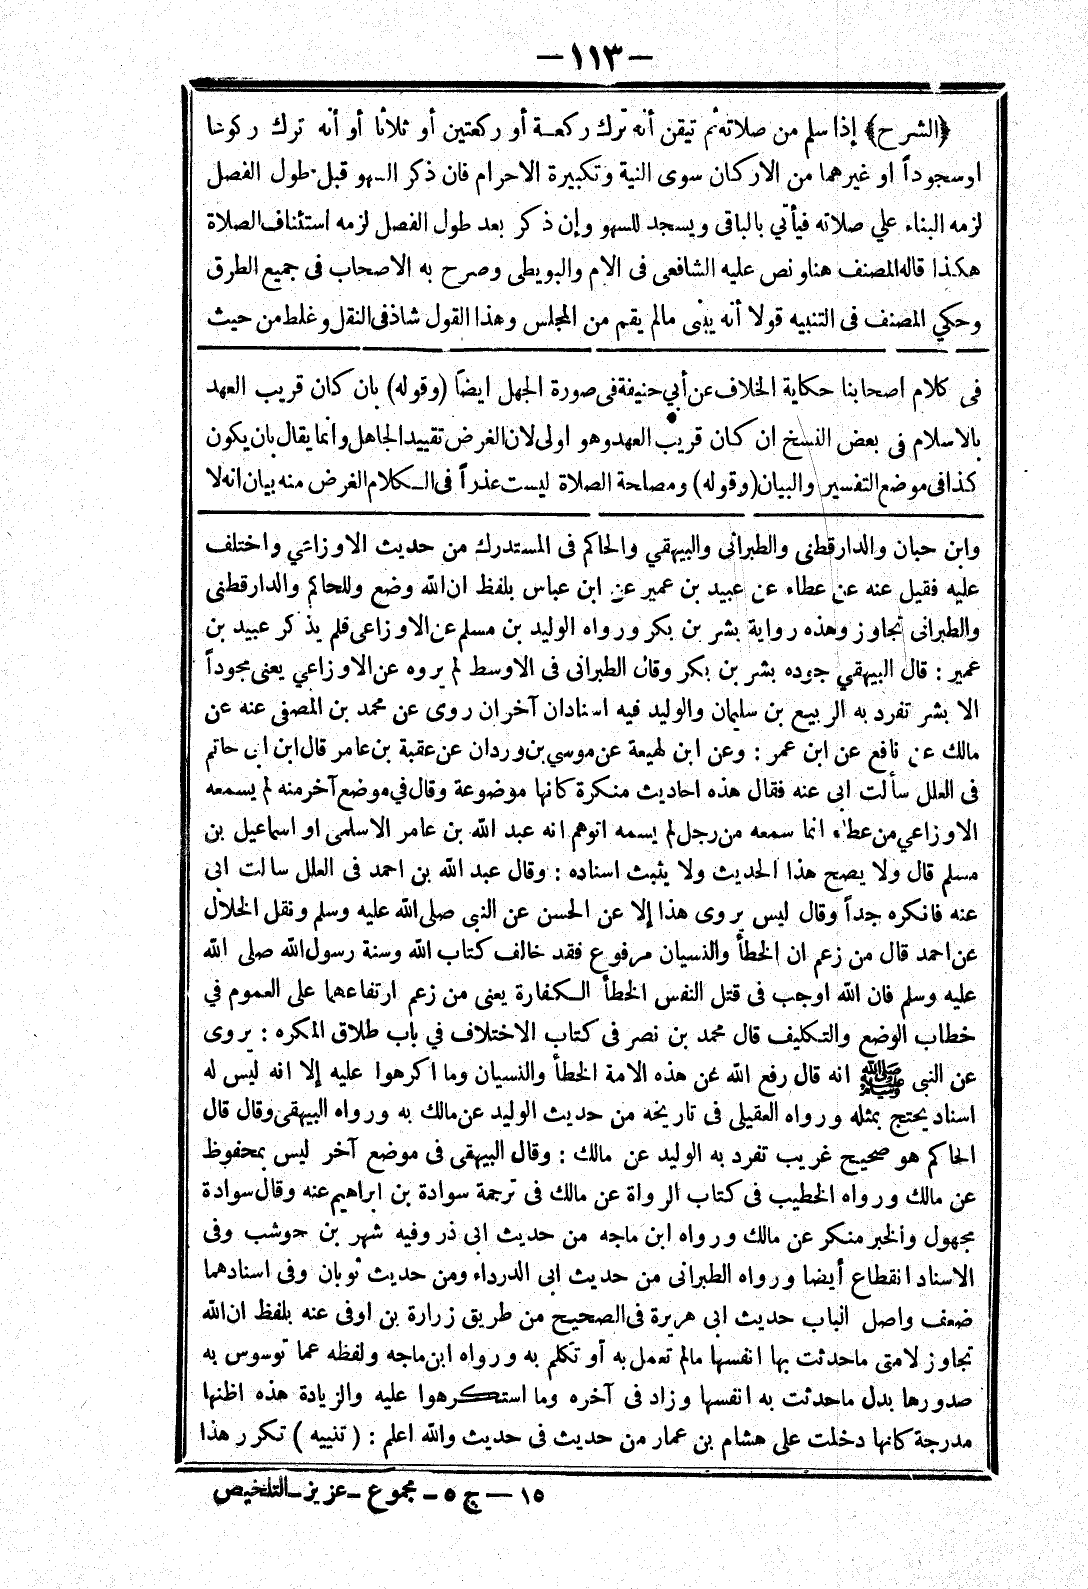 — ١١٣ —
﴿الشرح﴾ إذا سلم من صلاته ثم تيقن أنه ترك ركعـة أو ركعتين أو ثلاثا أو أنه ترك ركوعا
اوسجوداً او غيرهما من الاركان سوى النية وتكبيرة الاحرام فان ذكر السهو قبل طول الفصل
لزمه البناء علي صلاته فيأتي بالباقى ويسجد للسهو وإن ذكر بعد طول الفصل لزمه استئناف الصلاة
هكذا قاله المصنف هنا ونص عليه الشافعى فى الام والبويطى وصرح به الاصحاب فى جميع الطرق
وحكي المصنف فى التنبيه قولا أنه يبنى مالم يقم من المجلس وهذا القول شاذ فى النقل وغلط من حيث
فى كلام اصحابنا حكاية الخلاف عن أبي حنيفة فى صورة الجهل ايضاً (وقوله) بان كان قريب العهد
بالاسلام فى بعض النسخ ان كان قريب العهد وهو اولى لان الغرض تقييد الجاهل وانما يقال بان يكون
كذا فى موضع التفسير والبيان (وقوله) ومصلحة الصلاة ليست عذراً فى الـكلام الغرض منه بيان انه لا
وابن حبان والدارقطنى والطبرانى والبيهقي والحاكم فى المستدرك من حديث الاوزاعي واختلف
عليه فقيل عنه عن عطاء عن عبيد بن عمير عن ابن عباس بلفظ ان الله وضع وللحاكم والدارقطنى
والطبرانى تجاوز وهذه رواية بشر بن بكر ورواه الوليد بن مسلم عن الاوزاعى فلم يذكر عبيد بن
عمير : قال البيهقي جوده بشر بن بكر وقال الطبرانى فى الاوسط لم يروه عن الاوزاعي يعنى مجوداً
الا بشر تفرد به الربيع بن سليمان والوليد فيه اسنادان آخران روى عن محمد بن المصفى عنه عن
مالك عن نافع عن ابن عمر : وعن ابن لهيعة عن موسي بن وردان عن عقبة بن عامر قال ابن ابى حاتم
فى العلل سألت ابى عنه فقال هذه احاديث منكرة كانها موضوعة وقال في موضع آخر منه لم يسمعه
الاوزاعي من عطاء انما سمعه من رجل لم يسمه اتوهم انه عبد الله بن عامر الاسلمى او اسماعيل بن
مسلم قال ولا يصح هذا الحديث ولا يثبت اسناده : وقال عبد الله بن احمد فى العلل سالت ابى
عنه فانكره جداً وقال ليس يروى هذا إلا عن الحسن عن النبى صلى الله عليه وسلم ونقل الخلال
عن احمد قال من زعم ان الخطأ والنسيان مرفوع فقد خالف كتاب الله وسنة رسول الله صلى الله
عليه وسلم فان الله اوجب فى قتل النفس الخطأ الـكفارة يعنى من زعم ارتفاعهما على العموم في
خطاب الوضع والتكليف قال محمد بن نصر فى كتاب الاختلاف في باب طلاق المكره : يروى
عن النبى ﷺ انه قال رفع الله عن هذه الامة الخطأ والنسيان وما اكرهوا عليه إلا انه ليس له
اسناد يحتج بمثله ورواه العقيلى فى تاريخه من حديث الوليد عن مالك به ورواه البيهقى وقال قال
الحاكم هو صحيح غريب تفرد به الوليد عن مالك : وقال البيهقى فى موضع آخر ليس بمحفوظ
عن مالك ورواه الخطيب فى كتاب الرواة عن مالك فى ترجمة سوادة بن ابراهيم عنه وقال سوادة
مجهول والخبر منكر عن مالك ورواه ابن ماجه من حديث ابى ذر وفيه شهر بن حوشب وفى
الاسناد انقطاع أيضا ورواه الطبرانى من حديث ابى الدرداء ومن حديث ثوبان وفى اسنادهما
ضعف واصل الباب حديث ابى هريرة فى الصحيح من طريق زرارة بن اوفى عنه بلفظ ان الله
تجاوز لامتى ماحدثت بها انفسها مالم تعمل به أو تكلم به ورواه ابن ماجه ولفظه عما توسوس به
صدورها بدل ماحدثت به انفسها وزاد فى آخره وما استكرهوا عليه والزيادة هذه اظنها
مدرجة كانها دخلت على هشام بن عمار من حديث فى حديث والله اعلم : (تنبيه) تكرر هذا
١٥ — ج ٥ — مجموع — عزيز — التلخيص